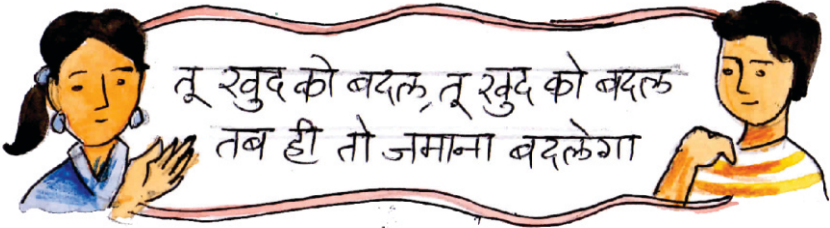 तू खुद को बदल, तू खुद को बदल
तब ही तो जमाना बदलेगा